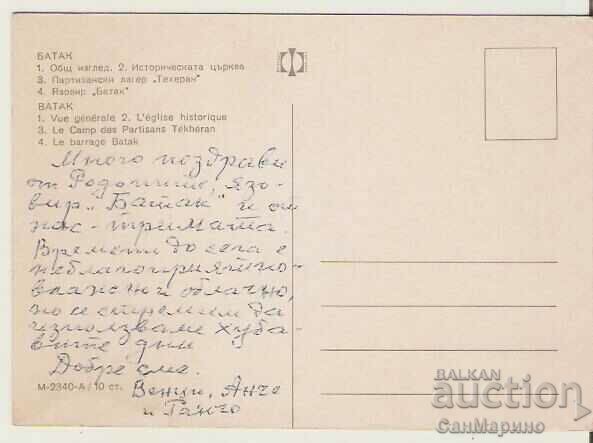 БАТАК
1. Общ изглед. 2. Историческата църква
3. Партизански лагер „Техеран“
4. Язовир „Батак“
BATAK
1. Vue générale 2. L'église historique
3. Le Camp des Partisans Tékhéran
4. Le barrage Batak
Много поздрави
от Родопите, язо-
вир „Батак“ и от
нас - тримата.
Времето до сега е
неблагоприятно -
влажно и облачно,
но се стремим да
използваме хуба-
вите дни
Добре сме.
М-2340-А/10 ст.
Венци, Анче
и Ганчо
BALKAN
auction
СанМарино